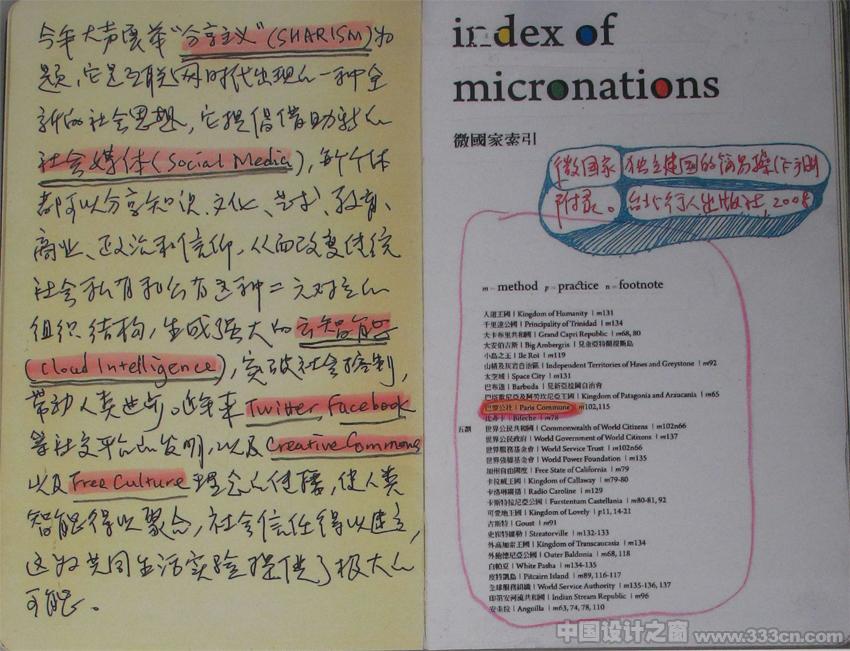 今年大声展举"分享主义"(SHARISM)为
题,它是互联网时代出现的一种全
新的社会思想,它提倡借助新的
社会媒体(Social Media),每个个体
都可以分享知识、文化、艺术、教育、
商业、政治和信仰,从而改变传统
社会私有和公有这种二元对立的
组织结构,生成强大的云智能
(Cloud Intelligence),突破社会控制,
带动人类进步。近年来Twitter Facebook
等社交平台的发明,以及Creative Commons
以及Free Culture理念的传播,使人类
智能得以聚合,社会信任得以建立,
这为共同生活实验提供了极大的
可能。
index of
micronations
微國家索引
微国家 独立建国的简易操作手册
附录。 台北行人出版社 2008
m = method p = practice n = footnote
人道王國 | Kingdom of Humanity | m131
千里達公國 | Principality of Trinidad | m134
大卡布里共和國 | Grand Capri Republic | m68, 80
大安伯吉斯 | Big Ambergris | 見金亞特蘭提斯島
小島之王 | Ile Roi | m119
山楂及灰岩自治區 | Independent Territories of Haws and Greystone | m92
太空城 | Space City | m131
巴布達 | Barbuda | 見新亞拉岡自治會
巴塔哥尼亞及阿勞坎尼亞王國 | Kingdom of Patagonia and Araucania | m65
巴黎公社 | Paris Commune | m102,115
比弗卡 | Bifeche | m78
五劃
世界公民共和國 | Commonwealth of World Citizens | m102n66
世界公民政府 | World Government of World Citizens | m137
世界服務基金會 | World Service Trust | m102n66
世界強權基金會 | World Power Foundation | m135
加州自由國度 | Free State of California | m79
卡拉威王國 | Kingdom of Callaway | m79-80
卡洛琳電臺 | Radio Caroline | m129
卡斯特拉尼亞公國 | Furstentum Castellania | m80-81, 92
可愛地王國 | Kingdom of Lovely | p11, 14-21
古斯特 | Goust | m91
史崔特維勒 | Streatorville | m132-133
外高加索王國 | Kingdom of Transcaucasia | m134
外鮑德尼亞公國 | Outer Baldonia | m68, 118
白帕夏 | White Pasha | m134-135
皮特凱島 | Pitcairn Island | m89, 116-117
全球服務組織 | World Service Authority | m135-136, 137
印第安河流共和國 | Indian Stream Republic | m96
安圭拉 | Anguilla | m63, 74, 78, 110
中国设计之窗 www.333cn.com